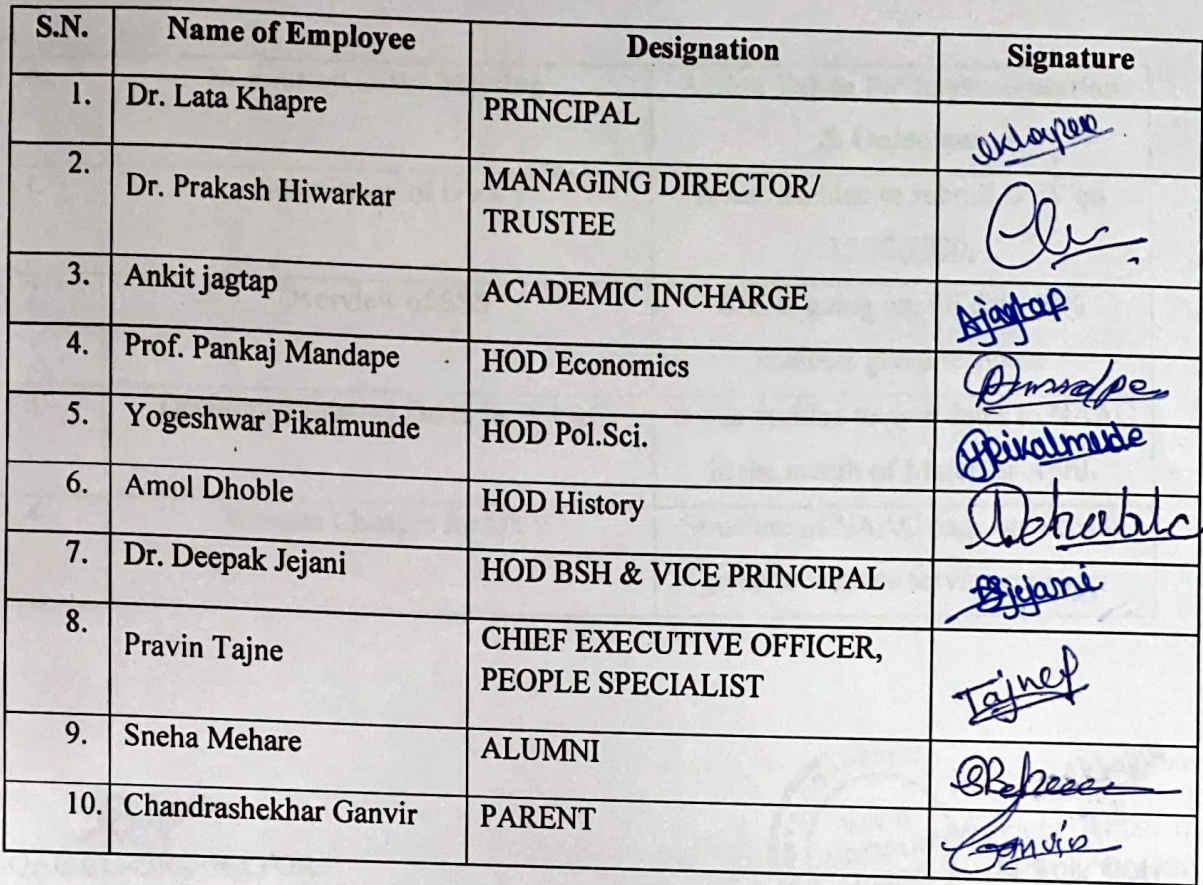 S.N. Name of Employee Designation Signature
1. Dr. Lata Khapre PRINCIPAL
2. Dr. Prakash Hiwarkar MANAGING DIRECTOR/
TRUSTEE
3. Ankit jagtap ACADEMIC INCHARGE Ajagtap
4. Prof. Pankaj Mandape HOD Economics
5. Yogeshwar Pikalmunde HOD Pol.Sci.
6. Amol Dhoble HOD History
7. Dr. Deepak Jejani HOD BSH & VICE PRINCIPAL
8. Pravin Tajne CHIEF EXECUTIVE OFFICER,
PEOPLE SPECIALIST
9. Sneha Mehare ALUMNI
10. Chandrashekhar Ganvir PARENT